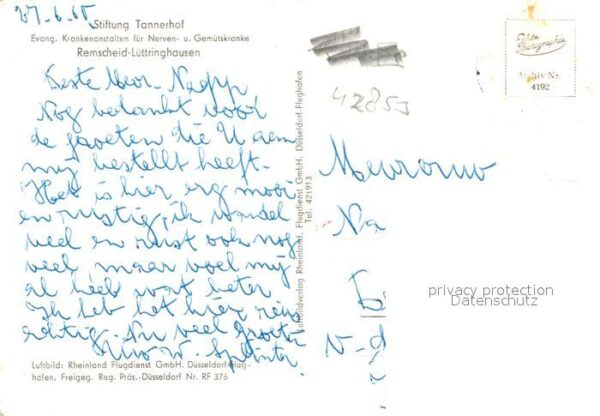 27-6-65
Stiftung Tannerhof
Evang. Krankenanstalten für Nerven- u. Gemütskranke
Remscheid-Lüttringhausen
Echte Photographie
Archiv Nr.
4192
42853
Beste Mevr.
Nog bedankt voor
de groeten die U aan
mij bestellt heeft.
Het is hier erg mooi
en rustig, ik wandel
veel en rust ook nog
veel maar voel mij
al heel wat beter
Ik heb het hier
Nu veel groeten
Mevrouw
Na
N-d
Luftbildverlag Rheinland, Flugdienst GmbH, Düsseldorf-Flughafen
Tel. 421913
privacy protection
Datenschutz
Luftbild: Rheinland Flugdienst GmbH. Düsseldorf-Flug-
hafen. Freigeg. Reg. Präs.-Düsseldorf Nr. RF 376